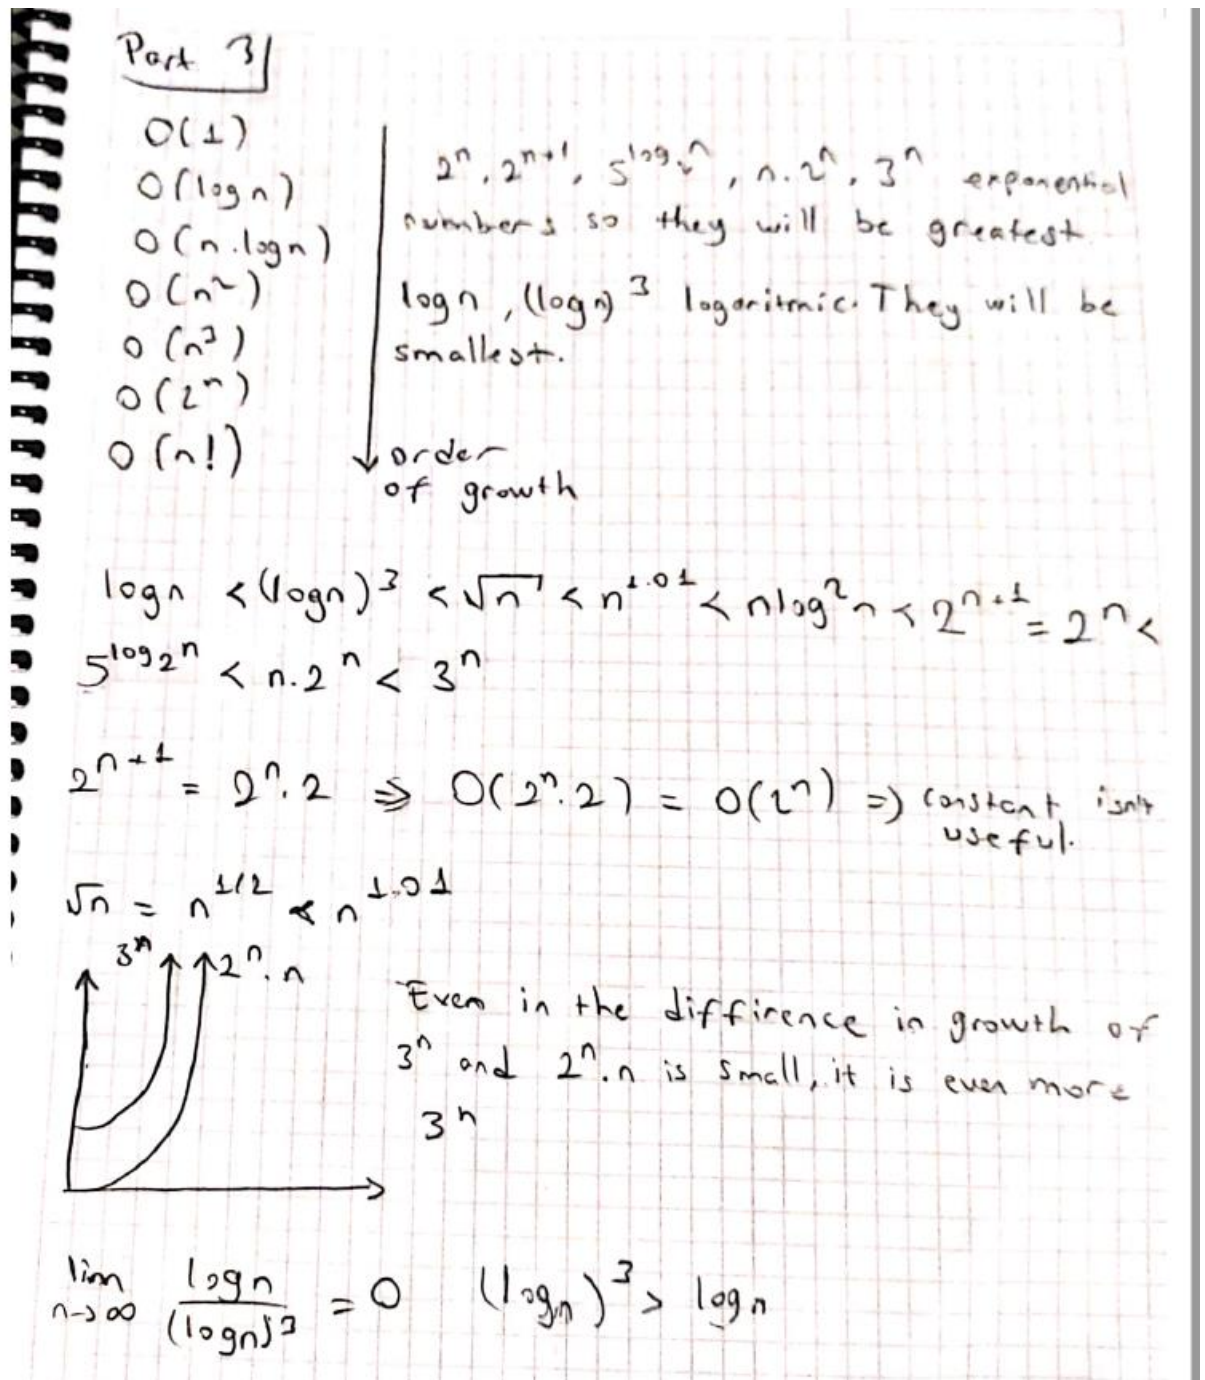 Part 3
O(1)
O(log n)
O(n.logn)
O(n²)
O(n³)
O(2ⁿ)
O(n!)
order
of growth
2ⁿ, 2ⁿ⁺¹, 5^log₂n, n.2ⁿ, 3ⁿ exponential
numbers so they will be greatest.
logn, (logn)³ logaritmic. They will be
smallest.
logn < (logn)³ < √n < n^1.01 < nlog²n < 2ⁿ⁺¹ = 2ⁿ <
5^log2n < n.2ⁿ < 3ⁿ
2ⁿ⁺¹ = 2ⁿ.2 => O(2ⁿ.2) = O(2ⁿ) => constant isn't
useful.
√n = n^1/2 < n^1.01
3ⁿ 2ⁿ.n
Even in the diffirence in growth of
3ⁿ and 2ⁿ.n is small, it is even more
3ⁿ
lim n->∞ logn/(logn)³ = 0 (logn)³ > logn